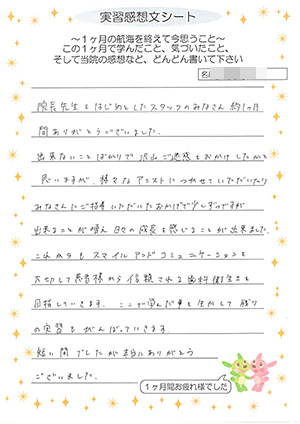 実習感想文シート
～1ヶ月の航海を終えて今思うこと～
この1ヶ月で学んだこと、気づいたこと、
そして当院の感想など、どんどん書いて下さい
名
院長先生をはじめとしたスタッフのみなさん 約1ヶ月
間ありがとうございました。
出来ないことばかりで沢山ご迷惑をおかけしたかと
思いますが、様々なアシストにつかせていただいたり
みなさんにご指導いただいたおかげで少しずつですが
出来ることが増え日々の成長を感じることが出来ました。
これからもスマイルアンドコミュニケーションを
大切にして患者様から信頼される歯科衛生士を
目指していきます。ここで学んだ事を生かして残り
の実習もがんばっていきます。
短い間でしたが本当にありがとう
ございました。
1ヶ月間お疲れ様でした